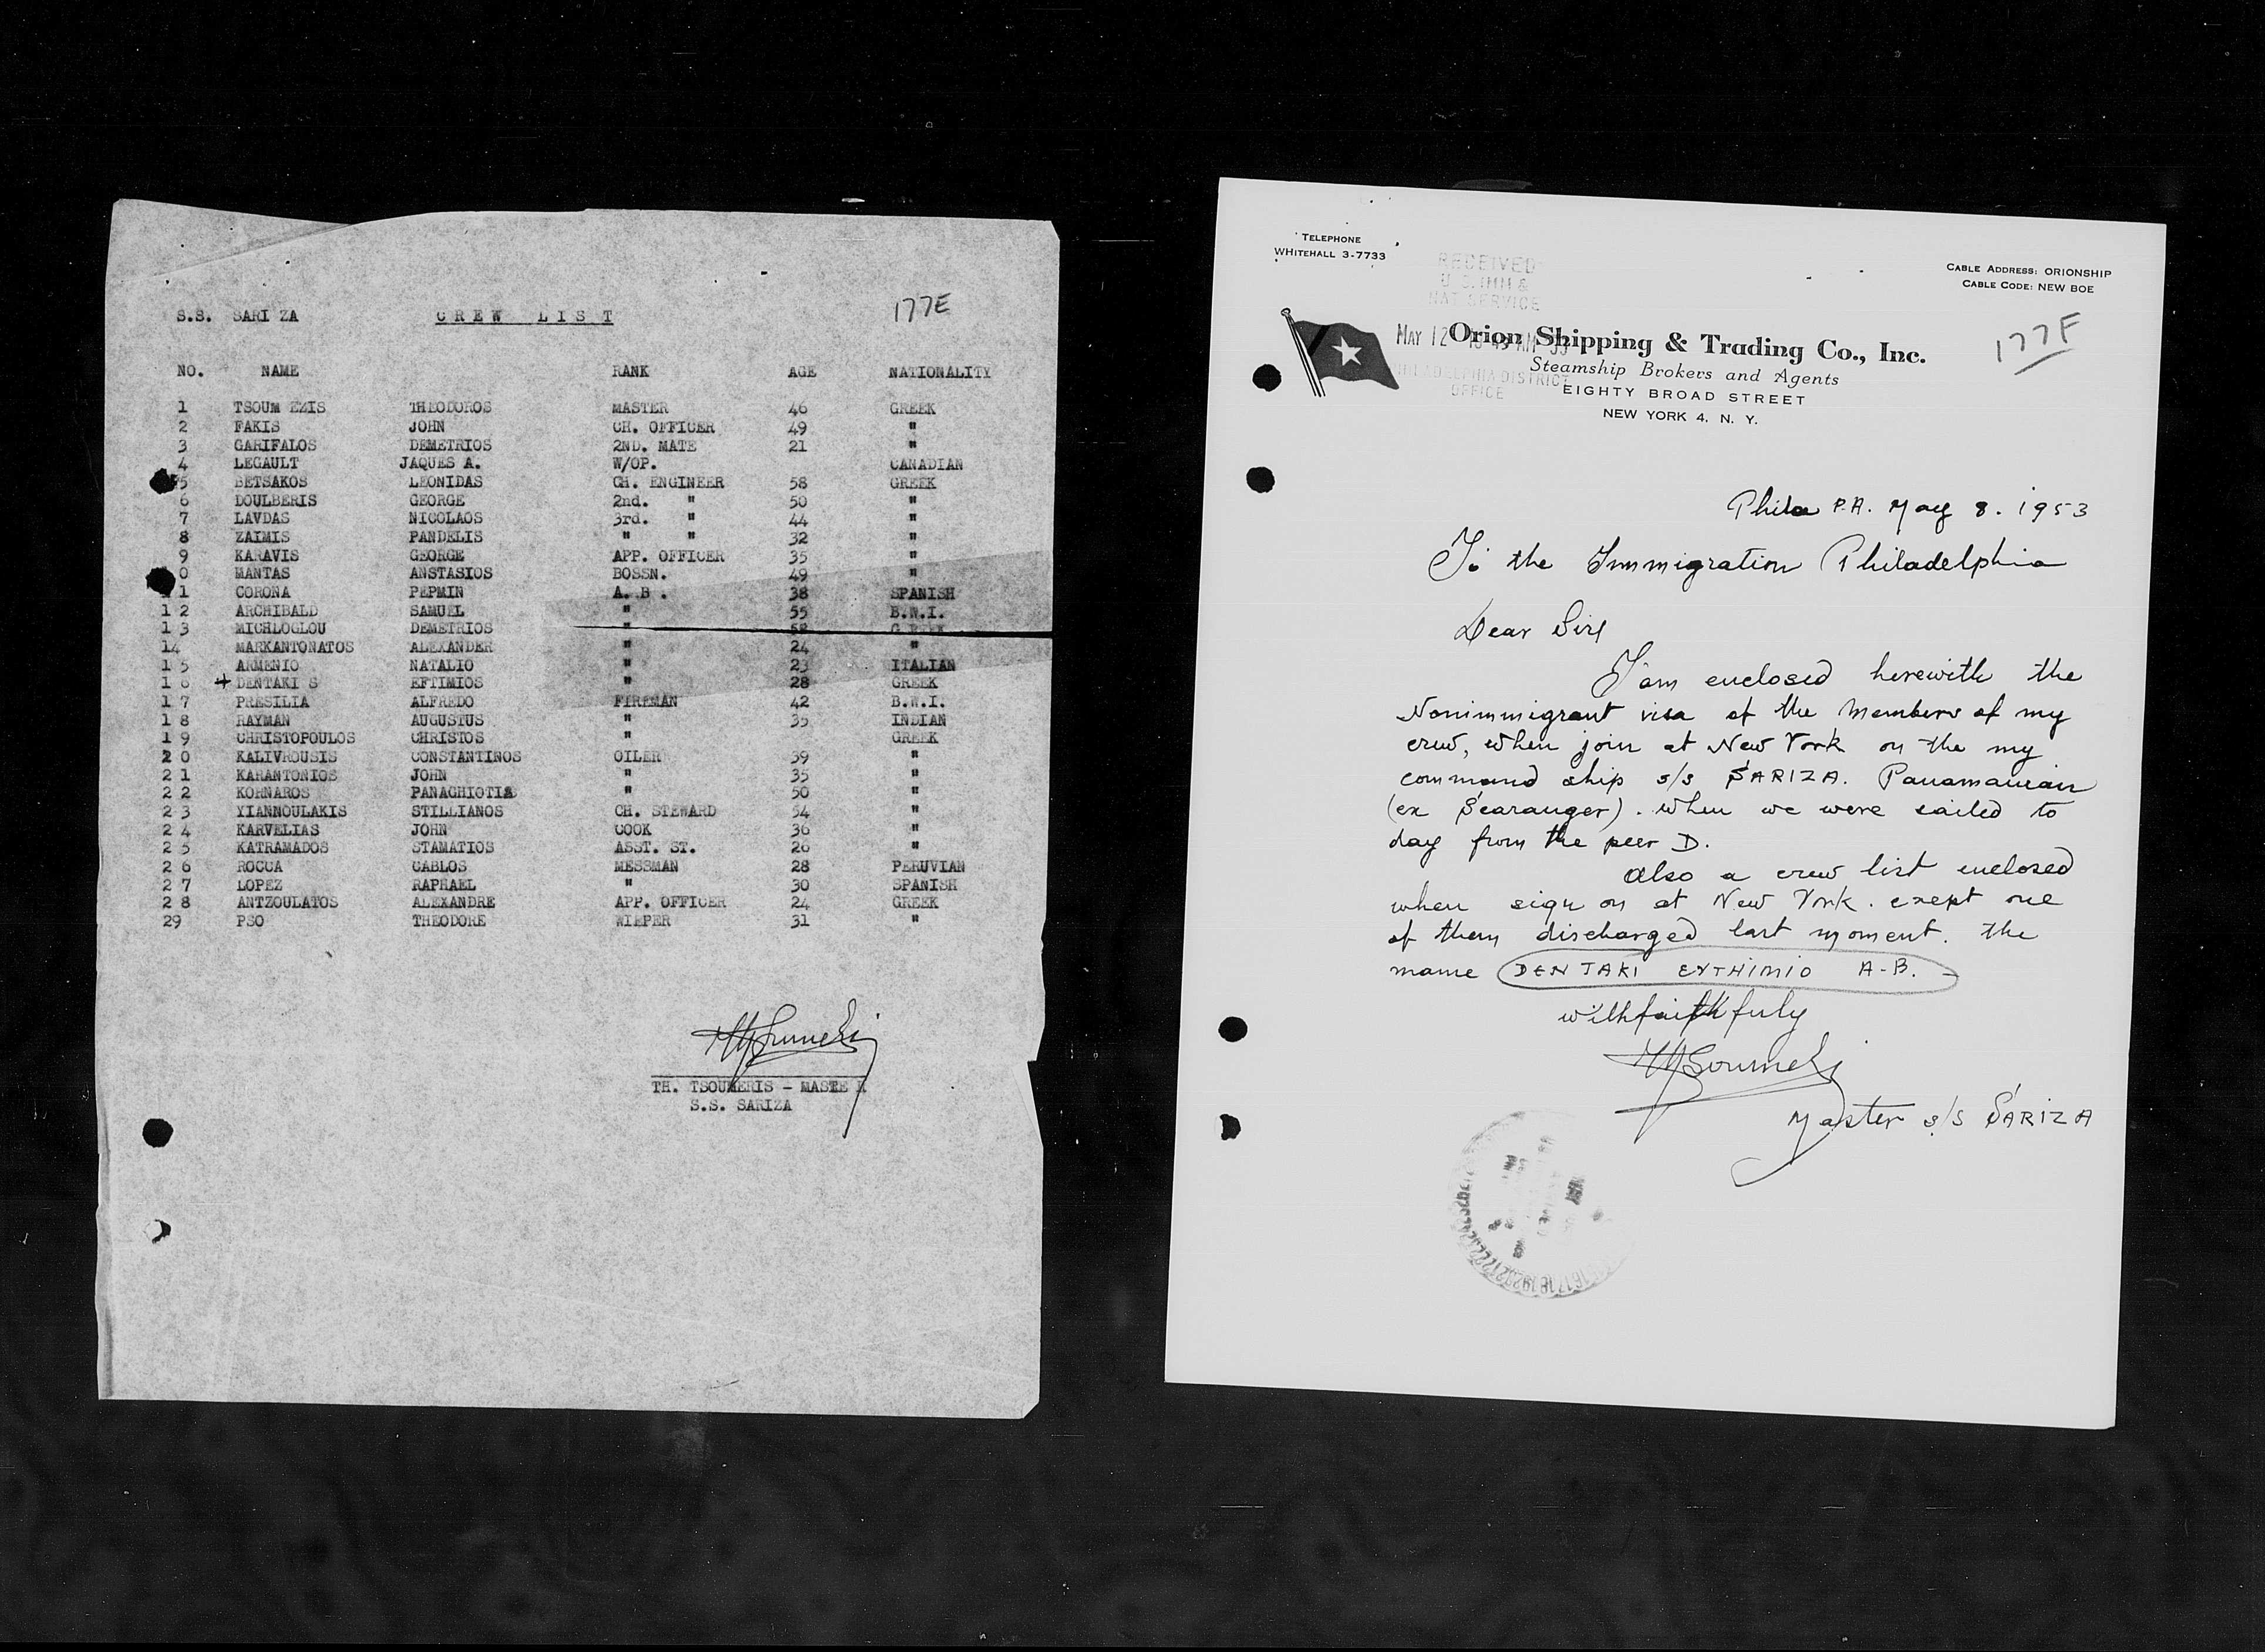 S.S. SARI ZA CREW LIST 177E
NO. NAME RANK AGE NATIONALITY
1 TSOUM EZIS THEODOROS MASTER 46 GREEK
2 FAKIS JOHN CH. OFFICER 49 "
3 GARIFALOS DEMETRIOS 2ND. MATE 21 "
4 LEGAULT JAQUES A. W/OP. CANADIAN
5 BETSAKOS LEONIDAS CH. ENGINEER 58 GREEK
6 DOULBERIS GEORGE 2nd. " 50 "
7 LAVDAS NICOLAOS 3rd. " 44 "
8 ZAIMIS PANDELIS " " 32 "
9 KARAVIS GEORGE APP. OFFICER 35 "
0 MANTAS ANSTASIOS BOSSN. 49 "
11 CORONA PEPMIN A. B . 38 SPANISH
12 ARCHIBALD SAMUEL " 55 B.W.I.
13 MICHLOGLOU DEMETRIOS "
14 MARKANTONATOS ALEXANDER " 24 "
15 ARMENIO NATALIO " 23 ITALIAN
16 + DENTAKI S EFTIMIOS " 28 GREEK
17 PRESILIA ALFREDO FIREMAN 42 B.W.I.
18 RAYMAN AUGUSTUS " 35 INDIAN
19 CHRISTOPOULOS CHRISTOS " GREEK
20 KALIVROUSIS CONSTANTINOS OILER 39 "
21 KARANTONIOS JOHN " 35 "
22 KORNAROS PANAGHIOTIS " 50 "
23 YIANNOULAKIS STILLIANOS CH. STEWARD 54 "
24 KARVELIAS JOHN COOK 36 "
25 KATRAMADOS STAMATIOS ASST. ST. 26 "
26 ROCCA CABLOS MESSMAN 28 PERUVIAN
27 LOPEZ RAPHAEL " 30 SPANISH
28 ANTZOULATOS ALEXANDRE APP. OFFICER 24 GREEK
29 PSO THEODORE WIEPER 31 "
TH. TSOUMERIS - MASTE R
S.S. SARIZA
TELEPHONE
WHITEHALL 3-7733
CABLE ADDRESS: ORIONSHIP
CABLE CODE: NEW BOE
RECEIVED
U.S. IMM &
NAT SERVICE
MAY 12 AM '53
PHILADELPHIA DISTRICT
OFFICE
177F
Orion Shipping & Trading Co., Inc.
Steamship Brokers and Agents
EIGHTY BROAD STREET
NEW YORK 4, N. Y.
Phila P.A. May 8. 1953
To the Immigration Philadelphia
Dear Sirs
I am enclosed herewith the
Nonimmigrant visa of the Members of my
crew, when join at New York on the my
command ship s/s SARIZA. Panamanian
(ex Searanger). when we were sailed to
day from the peer D.
Also a crew list enclosed
when sign on at New York. exept one
of them discharged last moment. the
name DENTAKI EYTHIMIO A-B.
withfaithfuly
Master s/s SARIZA